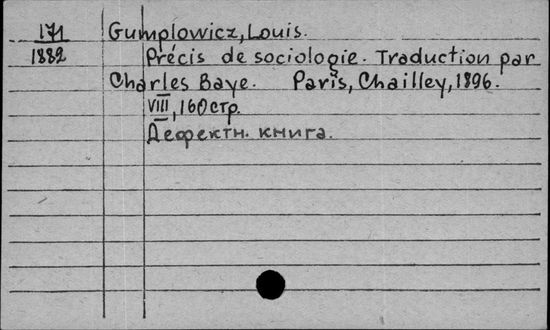 171 Gumplowicz, Louis.
1882 Précis de sociologie. Traduction par
Charles Baye. Paris, Chailley, 1896.
VIII, 160 стр.
Дефектн. книга.